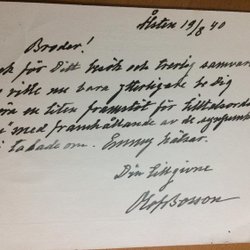 Åsten 19/8 40
Broder!
för Ditt besök och trevlig samvaro
ville nu bara ytterligare be Dig
en liten framstöt för
" med framhållande av de synpunkter
talade om. Emmy hälsar.
Din tillgivne
Olof Bosson